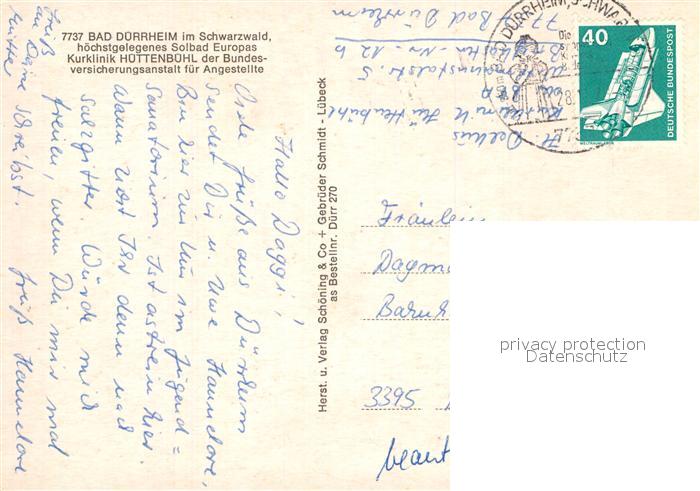 7737 BAD DÜRRHEIM im Schwarzwald,
höchstgelegenes Solbad Europas
Kurklinik HÜTTENBÜHL der Bundes-
versicherungsanstalt für Angestellte
Hallo Daggi!
Viele Grüße aus Dürrheim
sendet Dir u. Uwe Hannelore,
Bin hier zur Kur im Jugend=
Sanatorium. Ist astrein hier.
Wann zieht Ihr denn nach
Salzgitter. Würde mich
freuen, wenn Du mir mal
schreibst. Gruß Hannelore
Gruß
an Deine
Mutter
Herst. u. Verlag Schöning & Co + Gebrüder Schmidt - Lübeck
as Bestellnr. Dürr 270
Kurklinik Hüttenbühl
Zi-Nr. 12
77 Bad Dürrheim
DÜRRHEIM, SCHWAR
40
DEUTSCHE BUNDESPOST
WELTRAUMLABOR
Fräulein
Dagm
3395
beant
privacy protection
Datenschutz